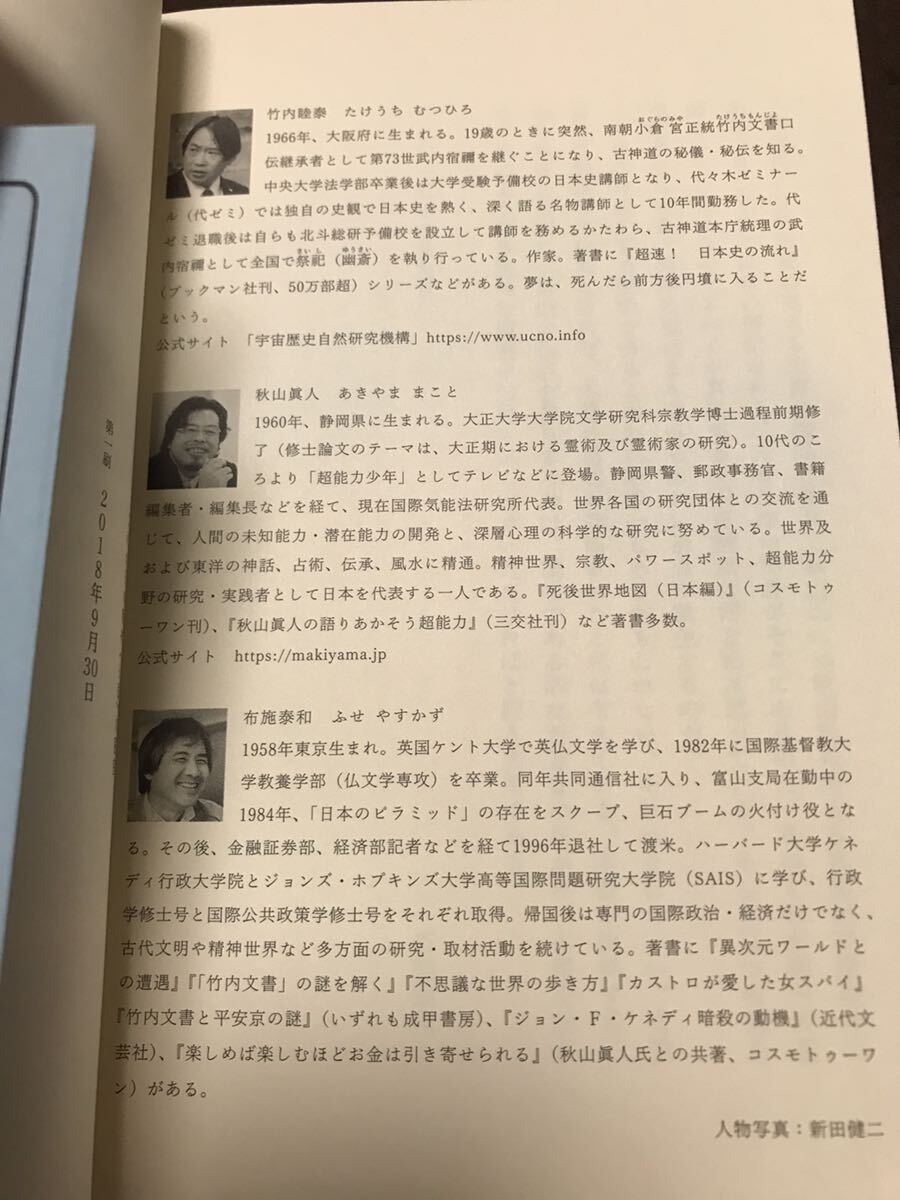 竹内睦泰　たけうち むつひろ
1966年、大阪府に生まれる。19歳のときに突然、南朝小倉宮正統竹内文書口
おぐらのみや　たけうちもんじよ
伝継承者として第73世武内宿禰を継ぐことになり、古神道の秘儀・秘伝を知る。
中央大学法学部卒業後は大学受験予備校の日本史講師となり、代々木ゼミナー
ル（代ゼミ）では独自の史観で日本史を熱く、深く語る名物講師として10年間勤務した。代
ゼミ退職後は自らも北斗総研予備校を設立して講師を務めるかたわら、古神道本庁統理の武
内宿禰として全国で祭祀（幽斎）を執り行っている。作家。著書に『超速！　日本史の流れ』
さいし　ゆうさい
（ブックマン社刊、50万部超）シリーズなどがある。夢は、死んだら前方後円墳に入ることだ
という。
公式サイト　「宇宙歴史自然研究機構」https://www.ucno.info
秋山眞人　あきやま まこと
1960年、静岡県に生まれる。大正大学大学院文学研究科宗教学博士過程前期修
了（修士論文のテーマは、大正期における霊術及び霊術家の研究）。10代のこ
ろより「超能力少年」としてテレビなどに登場。静岡県警、郵政事務官、書籍
編集者・編集長などを経て、現在国際気能法研究所代表。世界各国の研究団体との交流を通
じて、人間の未知能力・潜在能力の開発と、深層心理の科学的な研究に努めている。世界及
および東洋の神話、占術、伝承、風水に精通。精神世界、宗教、パワースポット、超能力分
野の研究・実践者として日本を代表する一人である。『死後世界地図（日本編）』（コスモトゥ
ーワン刊）、『秋山眞人の語りあかそう超能力』（三交社刊）など著書多数。
公式サイト　https://makiyama.jp
布施泰和　ふせ やすかず
1958年東京生まれ。英国ケント大学で英仏文学を学び、1982年に国際基督教大
学教養学部（仏文学専攻）を卒業。同年共同通信社に入り、富山支局在勤中の
1984年、「日本のピラミッド」の存在をスクープ、巨石ブームの火付け役とな
る。その後、金融証券部、経済部記者などを経て1996年退社して渡米。ハーバード大学ケネ
ディ行政大学院とジョンズ・ホプキンズ大学高等国際問題研究大学院（SAIS）に学び、行政
学修士号と国際公共政策学修士号をそれぞれ取得。帰国後は専門の国際政治・経済だけでなく、
古代文明や精神世界など多方面の研究・取材活動を続けている。著書に『異次元ワールドと
の遭遇』『「竹内文書」の謎を解く』『不思議な世界の歩き方』『カストロが愛した女スパイ』
『竹内文書と平安京の謎』（いずれも成甲書房）、『ジョン・F・ケネディ暗殺の動機』（近代文
芸社）、『楽しめば楽しむほどお金は引き寄せられる』（秋山眞人氏との共著、コスモトゥーワ
ン）がある。
人物写真：新田健二
第一刷　2018年9月30日